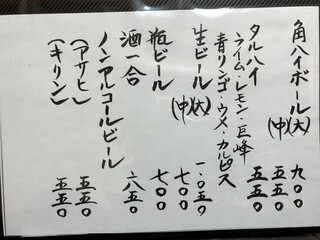 角ハイボール(大) 九〇〇
(中) 五五〇
タルハイ 五五〇
ライム・レモン・巨峰
青リンゴ・ウメ・カルピス
生ビール(大) 一、〇五〇
(中) 七〇〇
瓶ビール 七〇〇
酒一合 六五〇
ノンアルコールビール
(アサヒ) 五五〇
(キリン) 五五〇